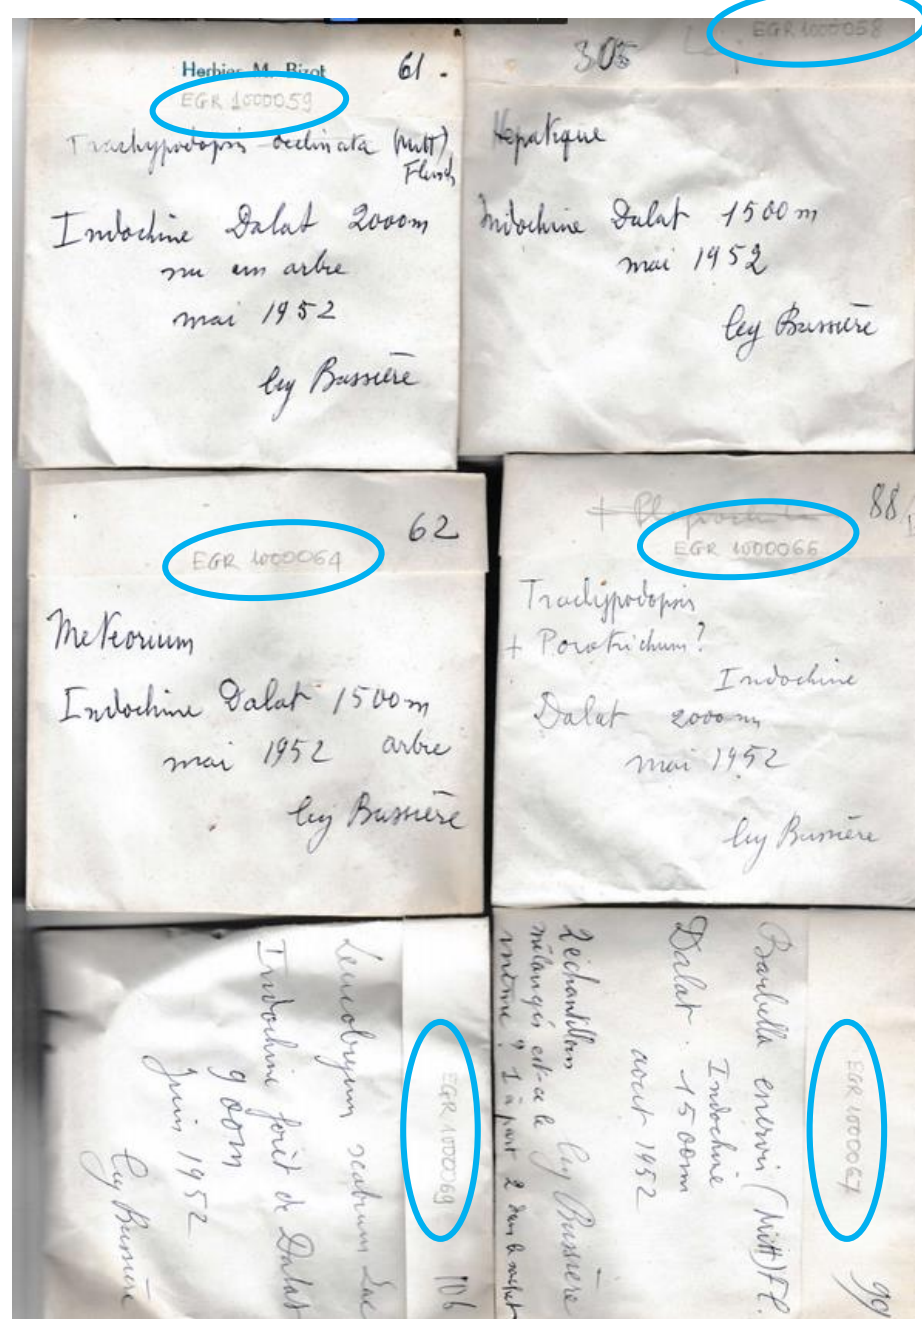 Herbier M. Bizot
61.
EGR 1000059
Trachypodopsis declinata (Mitt)
Fleisch
Indochine Dalat 2000m
sur un arbre
mai 1952
leg Bussière
EGR 1000058
305
Hepatique
Indochine Dalat 1500m
mai 1952
leg Bussière
62
EGR 1000064
Meteorium
Indochine Dalat 1500m
mai 1952 arbre
leg Bussière
88
EGR 1000066
Trachypodopsis
+ Porotrichum?
Indochine
Dalat 2000m
mai 1952
leg Bussière
106
EGR 1000069
Leucobryum scabrum Lac
Indochine forêt de Dalat
900m
Juin 1952
leg Bussière
EGR 1000067
Barbella enervis (Mitt) Fl.
Indochine
Dalat. 1500m
août 1952
leg Bussière
2 échantillons
mélangés est-ce le
même? 1 à part 2 dans le sachet